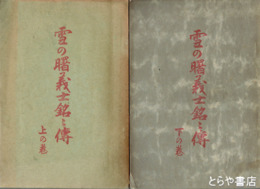 雪の曙義士銘々傳
上の巻
雪の曙義士銘々傳
下の巻
とらや書店